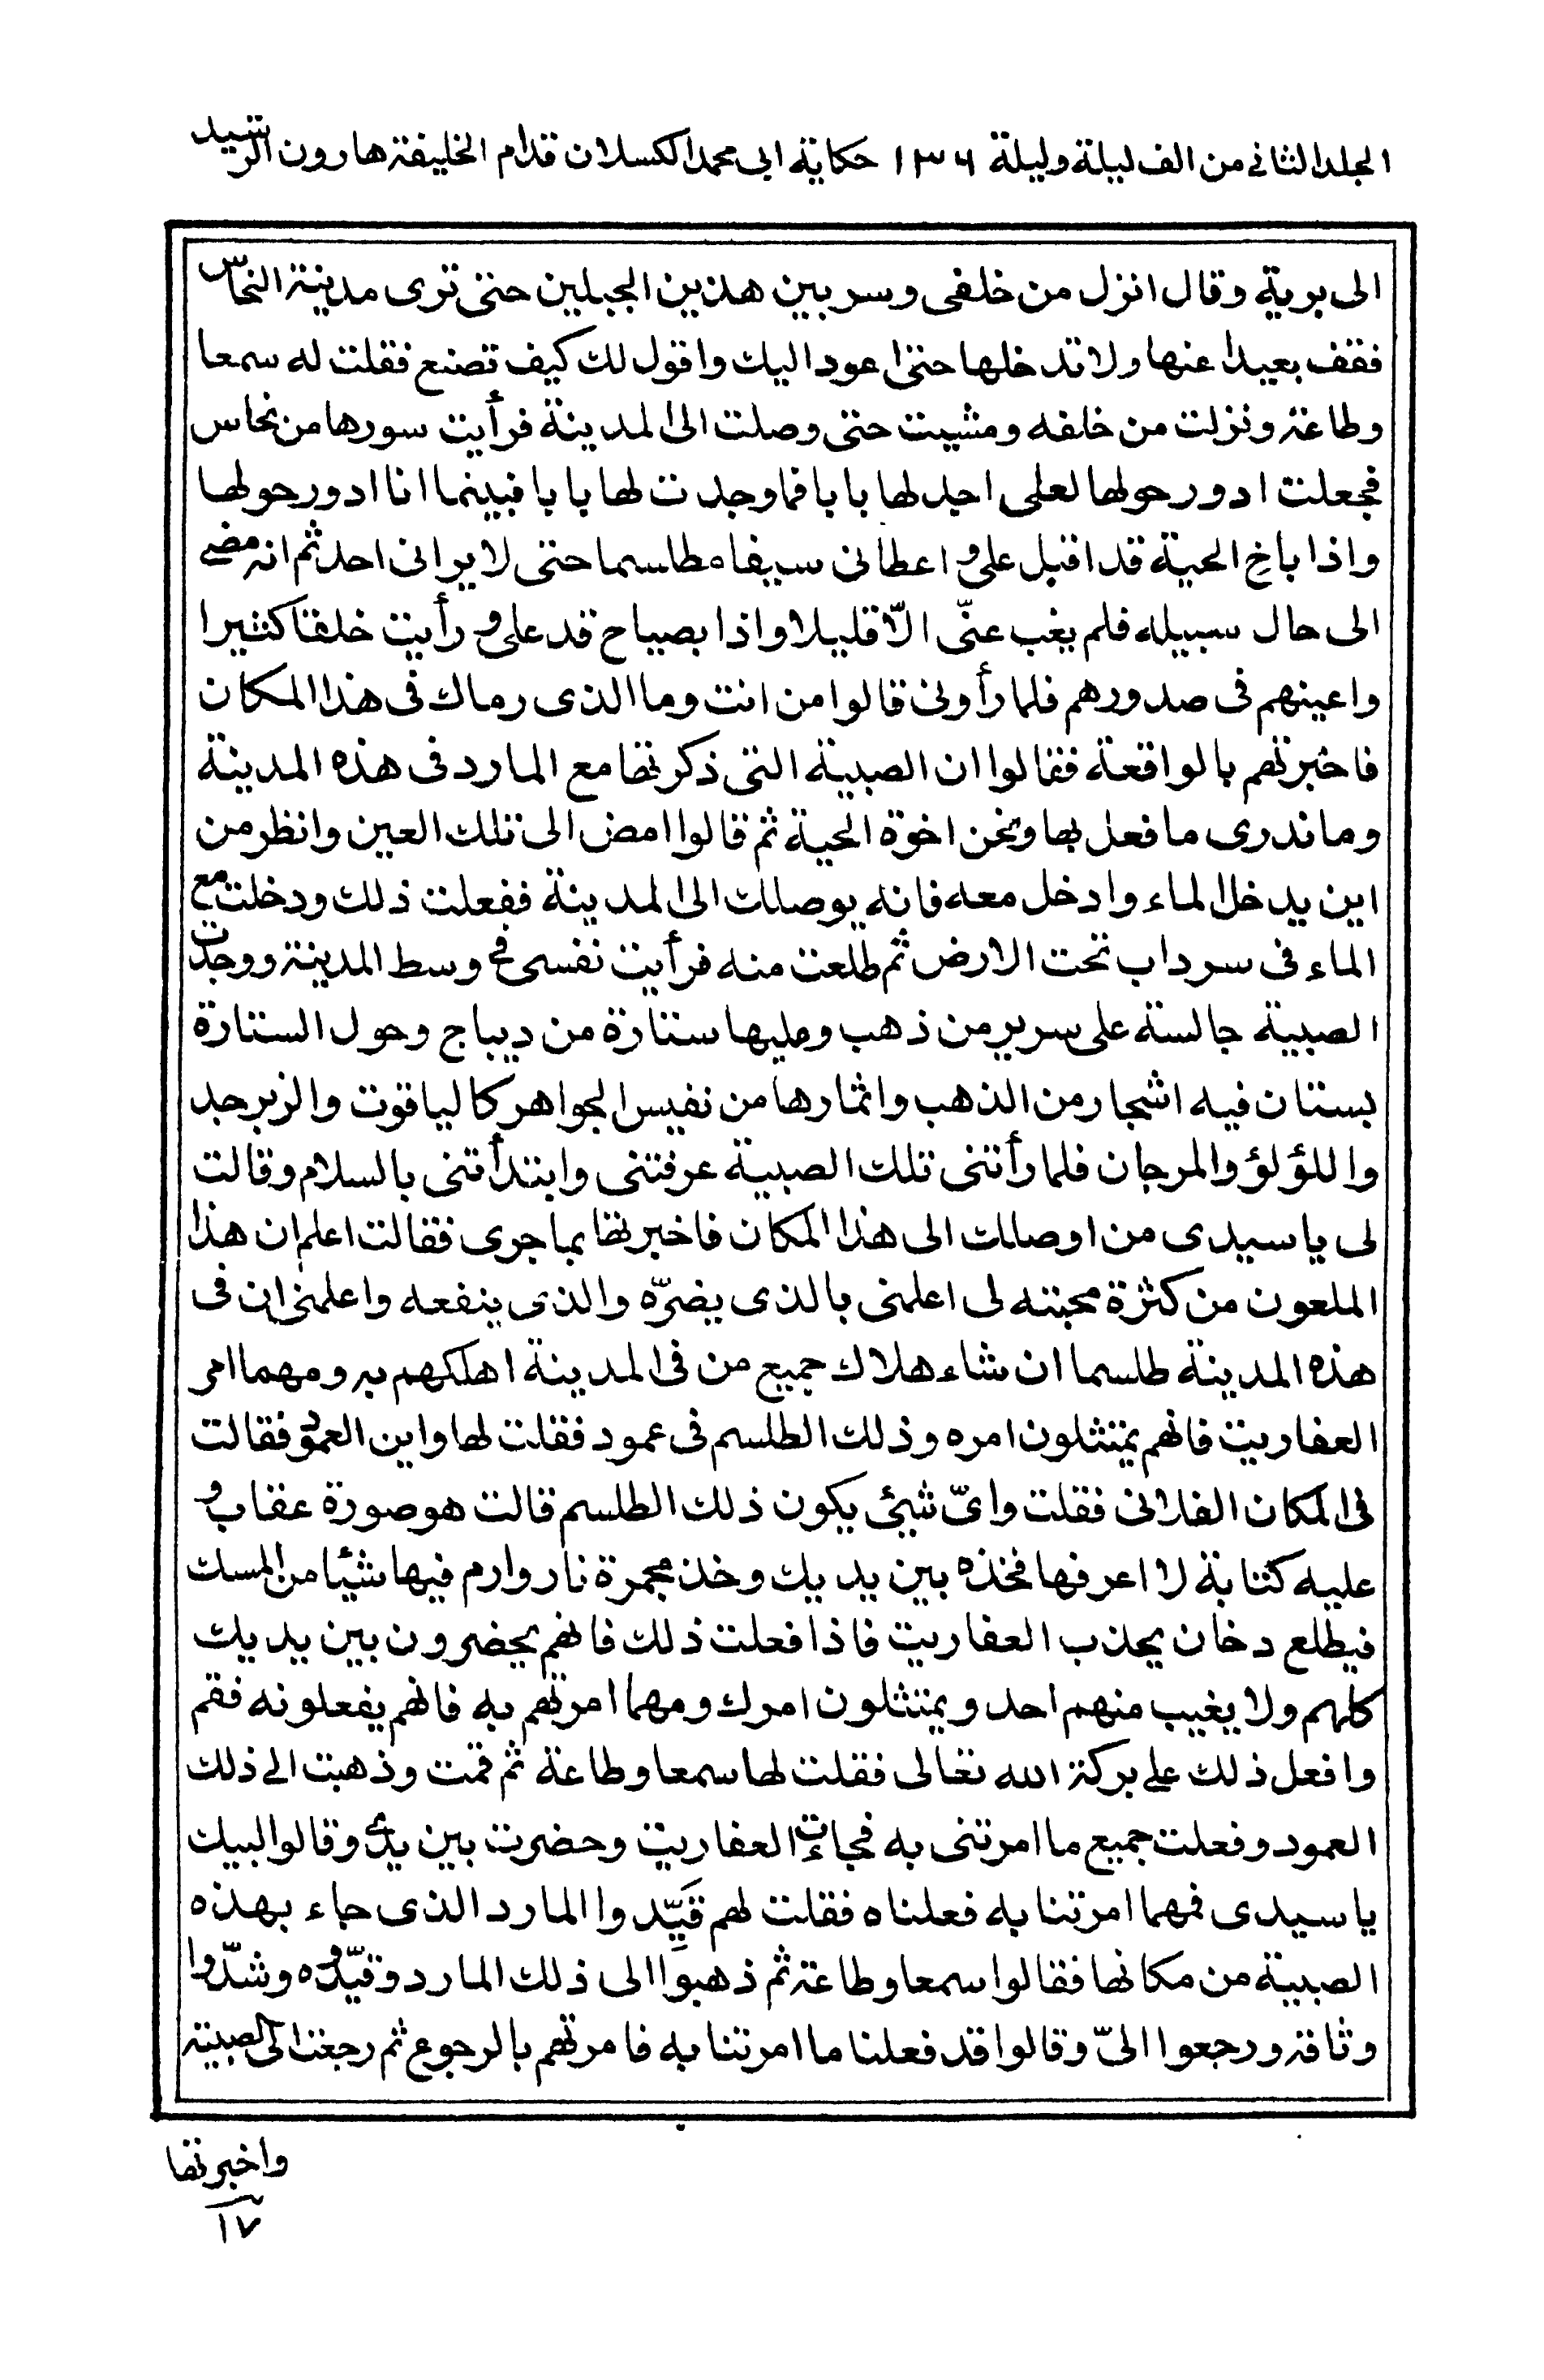 المجلد الثاني من الف ليلة وليلة ١٣٦ حكاية ابى محمد الكسلان قدام الخليفة هارون الرشيد
الى برية وقال انزل من خلفى وسر بين هذين الجبلين حتى ترى مدينة النحاس
فقف بعيدا عنها ولا تدخلها حتى اعود اليك واقول لك كيف تصنع فقلت له سمعا
وطاعة ونزلت من خلفه ومشيت حتى وصلت الى المدينة فرأيت سورها من نحاس
فجعلت ادور حولها لعلى اجد لها بابا فما وجدت لها بابا فبينما انا ادور حولها
واذا باخ الحية قد اقبل على و اعطانى سيفا مطلسما حتى لا يرانى احد ثم انه مضى
الى حال سبيله فلم يغب عنّى الّا قليلا واذا بصياح قد على و رأيت خلقا كثيرا
واعينهم فى صدورهم فلما رأونى قالوا من انت وما الذى رماك فى هذا المكان
فاخبرتهم بالواقعة فقالوا ان الصبية التى ذكرتها مع المارد فى هذه المدينة
وما ندرى ما فعل بها ونحن اخوة الحية ثم قالوا امض الى تلك العين وانظر من
اين يدخل الماء وادخل معه فانه يوصلك الى المدينة ففعلت ذلك ودخلت مع
الماء فى سرداب تحت الارض ثم طلعت منه فرأيت نفسى فى وسط المدينة ووجدت
الصبية جالسة على سرير من ذهب وعليها ستارة من ديباج وحول الستارة
بستان فيه اشجار من الذهب واثمارها من نفيس الجواهر كالياقوت والزبرجد
واللؤلؤ والمرجان فلما رأتنى تلك الصبية عرفتنى وابتدأتنى بالسلام وقالت
لى يا سيدى من اوصلك الى هذا المكان فاخبرتها بما جرى فقالت اعلم ان هذا
الملعون من كثرة محبته لى اعلمنى بالذى يضرّه والذى ينفعه واعلمنى ان فى
هذه المدينة طلسما ان شاء هلاك جميع من فى المدينة اهلكهم به ومهما امر
العفاريت فانهم يمتثلون امره وذلك الطلسم فى عمود فقلت لها واين العمود فقالت
فى المكان الفلانى فقلت واىّ شيئ يكون ذلك الطلسم قالت هو صورة عقاب و
عليه كتابة لا اعرفها فخذه بين يديك وخذ مجمرة نار وارم فيها شيئا من المسك
فيطلع دخان يجذب العفاريت فاذا فعلت ذلك فانهم يحضرون بين يديك
كلهم ولا يغيب منهم احد ويمتثلون امرك ومهما امرتهم به فانهم يفعلونه فقم
وافعل ذلك على بركة الله تعالى فقلت لها سمعا وطاعة ثم قمت وذهبت الى ذلك
العمود وفعلت جميع ما امرتنى به فجاءت العفاريت وحضرت بين يدى وقالوا لبيك
يا سيدى فمهما امرتنا به فعلناه فقلت لهم قَيِّدوا المارد الذى جاء بهذه
الصبية من مكانها فقالوا سمعا وطاعة ثم ذهبوا الى ذلك المارد وقيّدوه وشدّوا
وثاقه ورجعوا الىّ وقالوا قد فعلنا ما امرتنا به فامرتهم بالرجوع ثم رجعت الى الصبية
واخبرتها
١٧